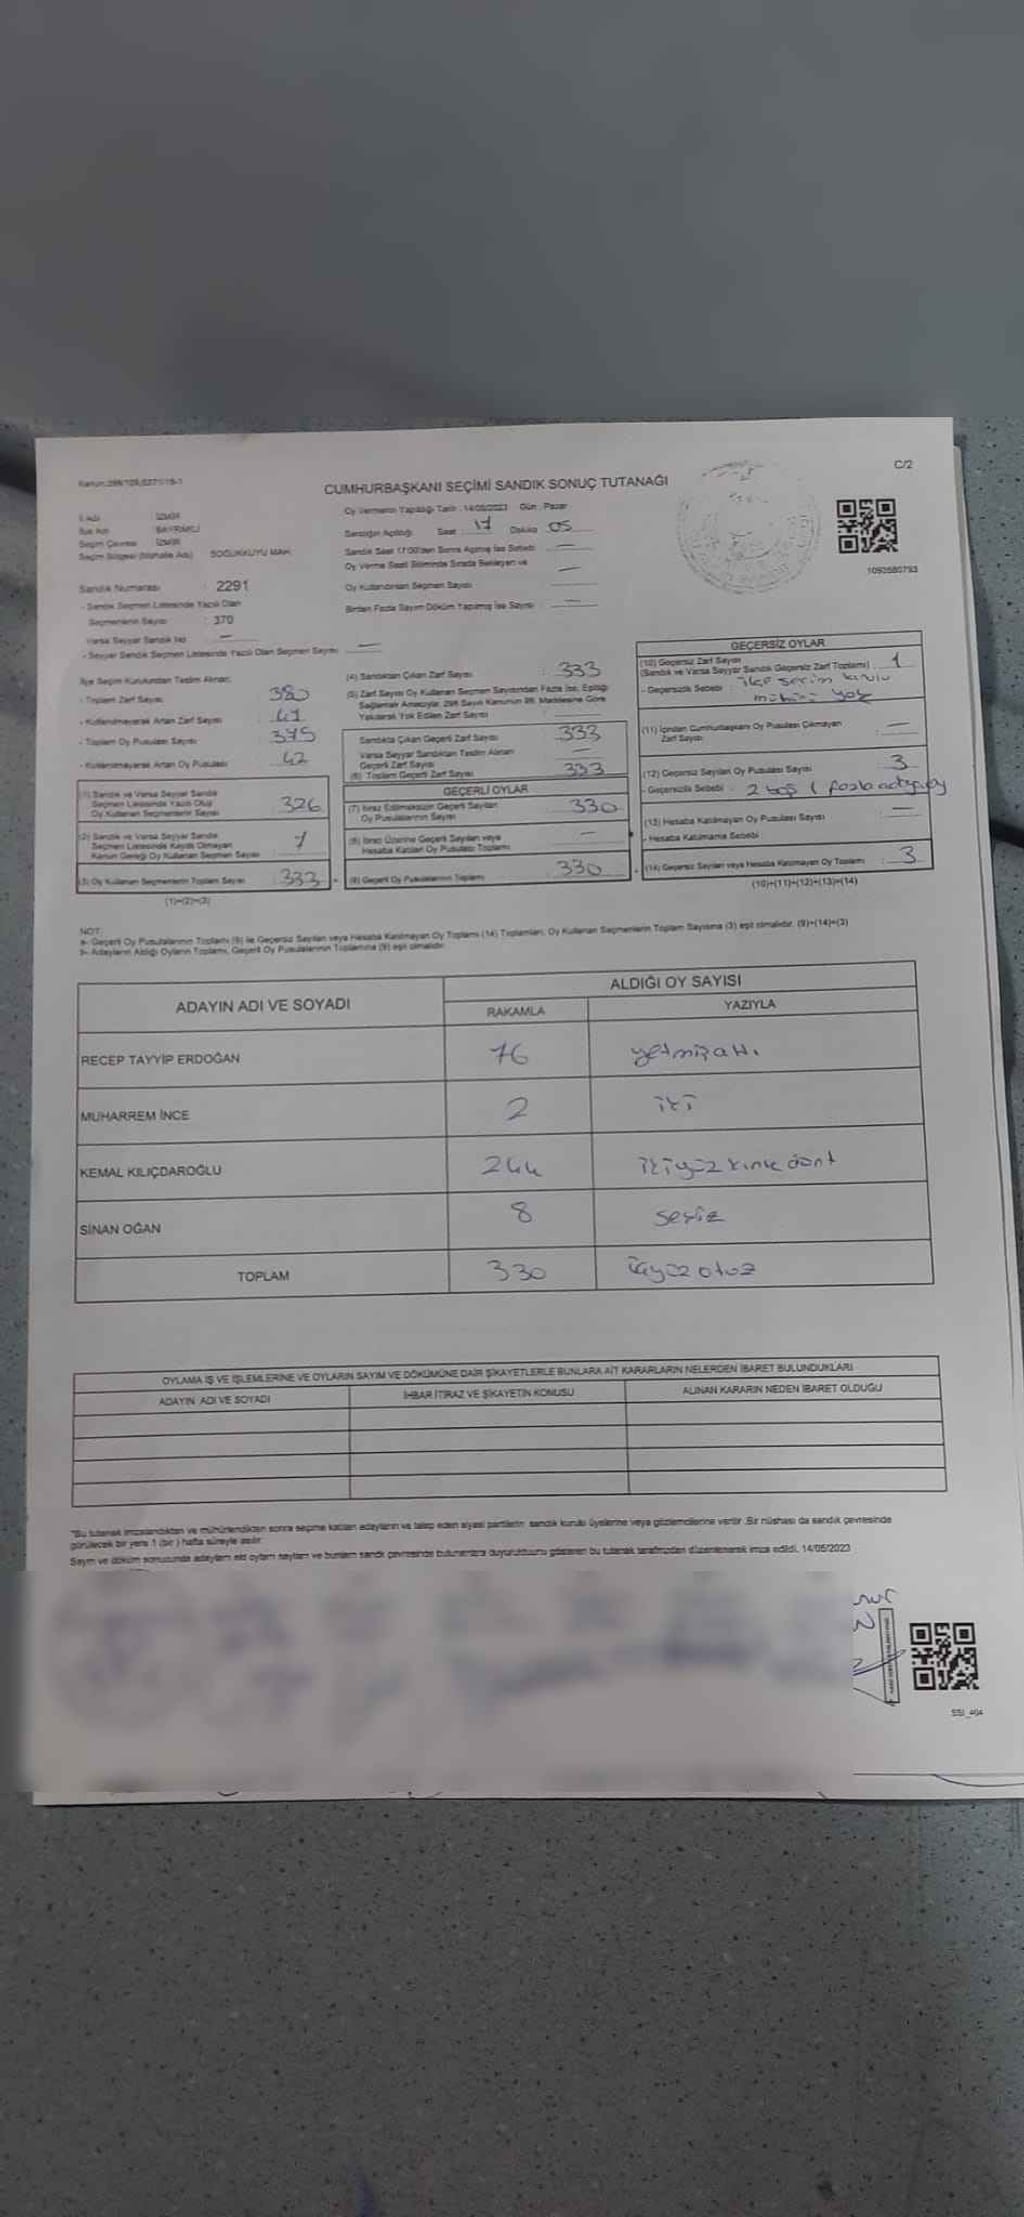 Kanun:298/109,6271/18-1
C/2
CUMHURBAŞKANI SEÇİMİ SANDIK SONUÇ TUTANAĞI
İl Adı İZMİR
İlçe Adı BAYRAKLI
Seçim Çevresi İZMİR
Seçim Bölgesi (Mahalle Adı) SOĞUKKUYU MAH.
Sandık Numarası : 2291
- Sandık Seçmen Listesinde Yazılı Olan
Seçmenlerin Sayısı : 370
Varsa Seyyar Sandık No —
- Seyyar Sandık Seçmen Listesinde Yazılı Olan Seçmen Sayısı —
Oy Vermenin Yapıldığı Tarih : 14/05/2023 Gün : Pazar
Sandığın Açıldığı Saat 17 Dakika 05
Sandık Saat 17:00'den Sonra Açılmış İse Sebebi —
Oy Verme Saati Bitiminde Sırada Bekleyen ve —
Oy Kullandırılan Seçmen Sayısı
Birden Fazla Sayım Döküm Yapılmış İse Sayısı —
1093580793
İlçe Seçim Kurulundan Teslim Alınan:
- Toplam Zarf Sayısı 380
- Kullanılmayarak Artan Zarf Sayısı 47
- Toplam Oy Pusulası Sayısı 375
- Kullanılmayarak Artan Oy Pusulası 42
(1) Sandık ve Varsa Seyyar Sandık
Seçmen Listesinde Yazılı Olup
Oy Kullanan Seçmenlerin Sayısı 326
(2) Sandık ve Varsa Seyyar Sandık
Seçmen Listesinde Kayıtlı Olmayan
Kanun Gereği Oy Kullanan Seçmen Sayısı 7
(3) Oy Kullanan Seçmenlerin Toplam Sayısı : 333
(1)+(2)=(3)
(4) Sandıktan Çıkan Zarf Sayısı : 333
(5) Zarf Sayısı Oy Kullanan Seçmen Sayısından Fazla İse, Eşitliği
Sağlamak Amacıyla; 298 Sayılı Kanunun 98. Maddesine Göre
Yakılarak Yok Edilen Zarf Sayısı —
Sandıkta Çıkan Geçerli Zarf Sayısı 333
Varsa Seyyar Sandıktan Teslim Alınan
Geçerli Zarf Sayısı —
(6) Toplam Geçerli Zarf Sayısı 333
GEÇERLİ OYLAR
(7) İtiraz Edilmeksizin Geçerli Sayılan
Oy Pusulalarının Sayısı 330
(8) İtiraz Üzerine Geçerli Sayılan veya
Hesaba Katılan Oy Pusulası Toplamı —
(9) Geçerli Oy Pusulalarının Toplamı 330
GEÇERSİZ OYLAR
(10) Geçersiz Zarf Sayısı
(Sandık ve Varsa Seyyar Sandık Geçersiz Zarf Toplamı) 1
- Geçersizlik Sebebi : ilçe seçim kurulu
mührü yok
(11) İçinden Cumhurbaşkanı Oy Pusulası Çıkmayan
Zarf Sayısı : —
(12) Geçersiz Sayılan Oy Pusulası Sayısı 3
- Geçersizlik Sebebi : 2 boş 1 fazla adaya oy
(13) Hesaba Katılmayan Oy Pusulası Sayısı : —
- Hesaba Katılmama Sebebi
(14) Geçersiz Sayılan veya Hesaba Katılmayan Oy Toplamı : 3
(10)+(11)+(12)+(13)=(14)
NOT:
a- Geçerli Oy Pusulalarının Toplamı (9) ile Geçersiz Sayılan veya Hesaba Katılmayan Oy Toplamı (14) Toplamları, Oy Kullanan Seçmenlerin Toplam Sayısına (3) eşit olmalıdır. (9)+(14)=(3)
b- Adayların Aldığı Oyların Toplamı, Geçerli Oy Pusulalarının Toplamına (9) eşit olmalıdır.
ADAYIN ADI VE SOYADI
ALDIĞI OY SAYISI
RAKAMLA YAZIYLA
RECEP TAYYİP ERDOĞAN 76 yetmişaltı
MUHARREM İNCE 2 iki
KEMAL KILIÇDAROĞLU 244 ikiyüz kırk dört
SİNAN OĞAN 8 sekiz
TOPLAM 330 üçyüz otuz
OYLAMA İŞ VE İŞLEMLERİNE VE OYLARIN SAYIM VE DÖKÜMÜNE DAİR ŞİKAYETLERLE BUNLARA AİT KARARLARIN NELERDEN İBARET BULUNDUKLARI
ADAYIN ADI VE SOYADI İHBAR İTİRAZ VE ŞİKAYETİN KONUSU ALINAN KARARIN NEDEN İBARET OLDUĞU
*Bu tutanak imzalandıktan ve mühürlendikten sonra seçime katılan adayların ve talep eden siyasi partilerin sandık kurulu üyelerine veya gözlemcilerine verilir .Bir nüshası da sandık çevresinde
görülecek bir yere 1 (bir ) hafta süreyle asılır.
Sayım ve döküm sonucunda adayların ekli oyların sayıları ve bunların sandık çevresinde bulunanlara duyurulduğunu gösteren bu tutanak tarafımızdan düzenlenerek imza edildi. 14/05/2023
SSI_404